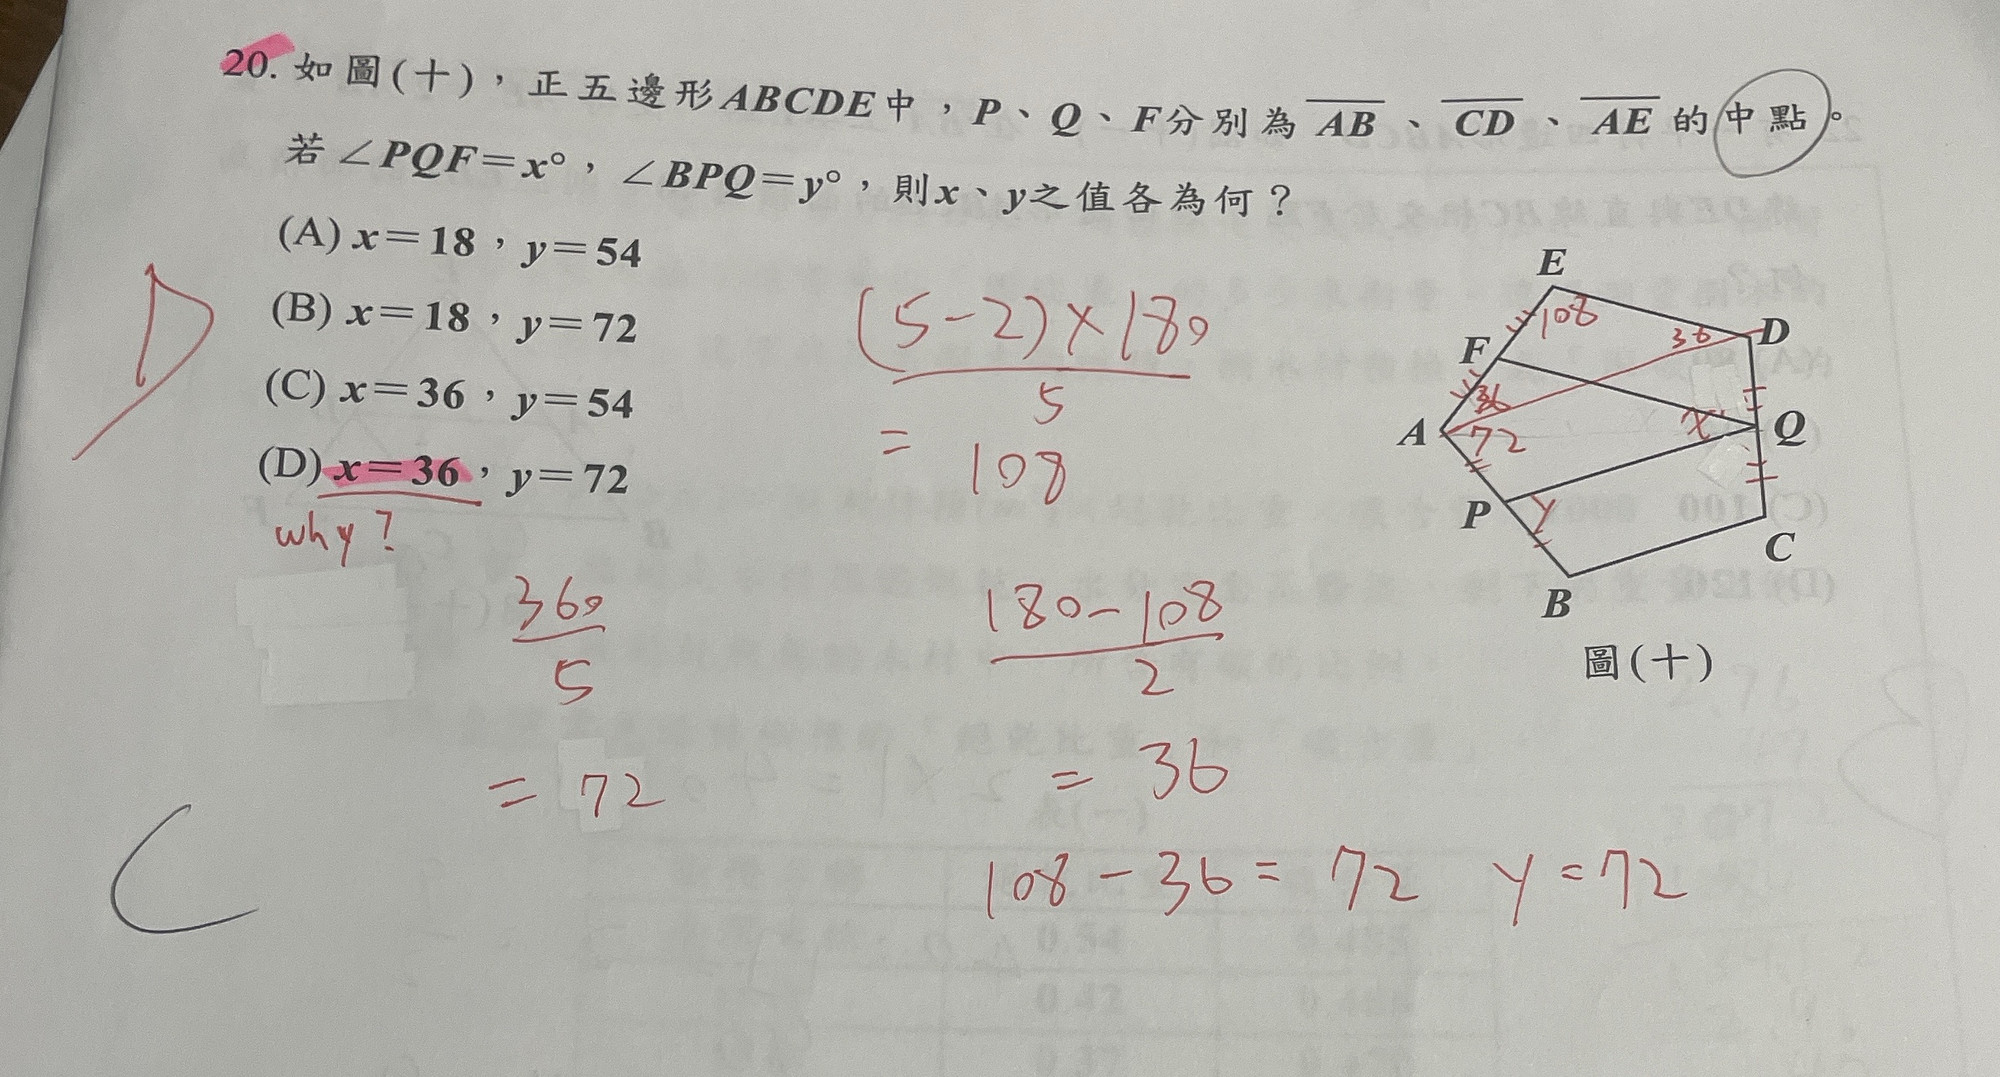 20. 如圖(十),正五邊形ABCDE中,P、Q、F分別為AB、CD、AE的中點。
若∠PQF=x°,∠BPQ=y°,則x、y之值各為何?
(A) x=18,y=54
(B) x=18,y=72
(C) x=36,y=54
(D) x=36,y=72
why?
D
(5-2)×180
5
= 108
360
5
= 72
180-108
2
= 36
108-36=72 y=72
C
E
108
36 D
F
36
A 72
x Q
P y
C
B
圖(十)